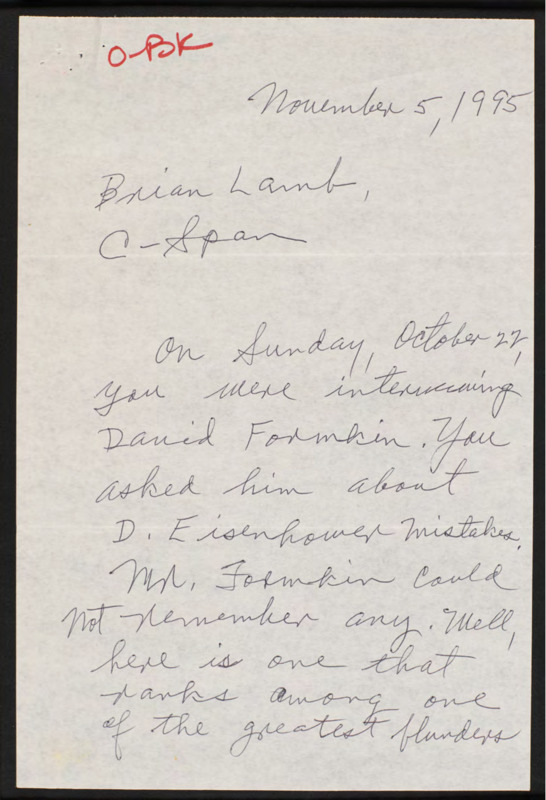 O-BK
November 5, 1995
Brian Lamb,
C-Span
On Sunday, October 22,
you were interviewing
David Formkin. You
asked him about
D. Eisenhower mistakes.
Mr. Formkin could
not remember any. Well,
here is one that
ranks among one
of the greatest flunders